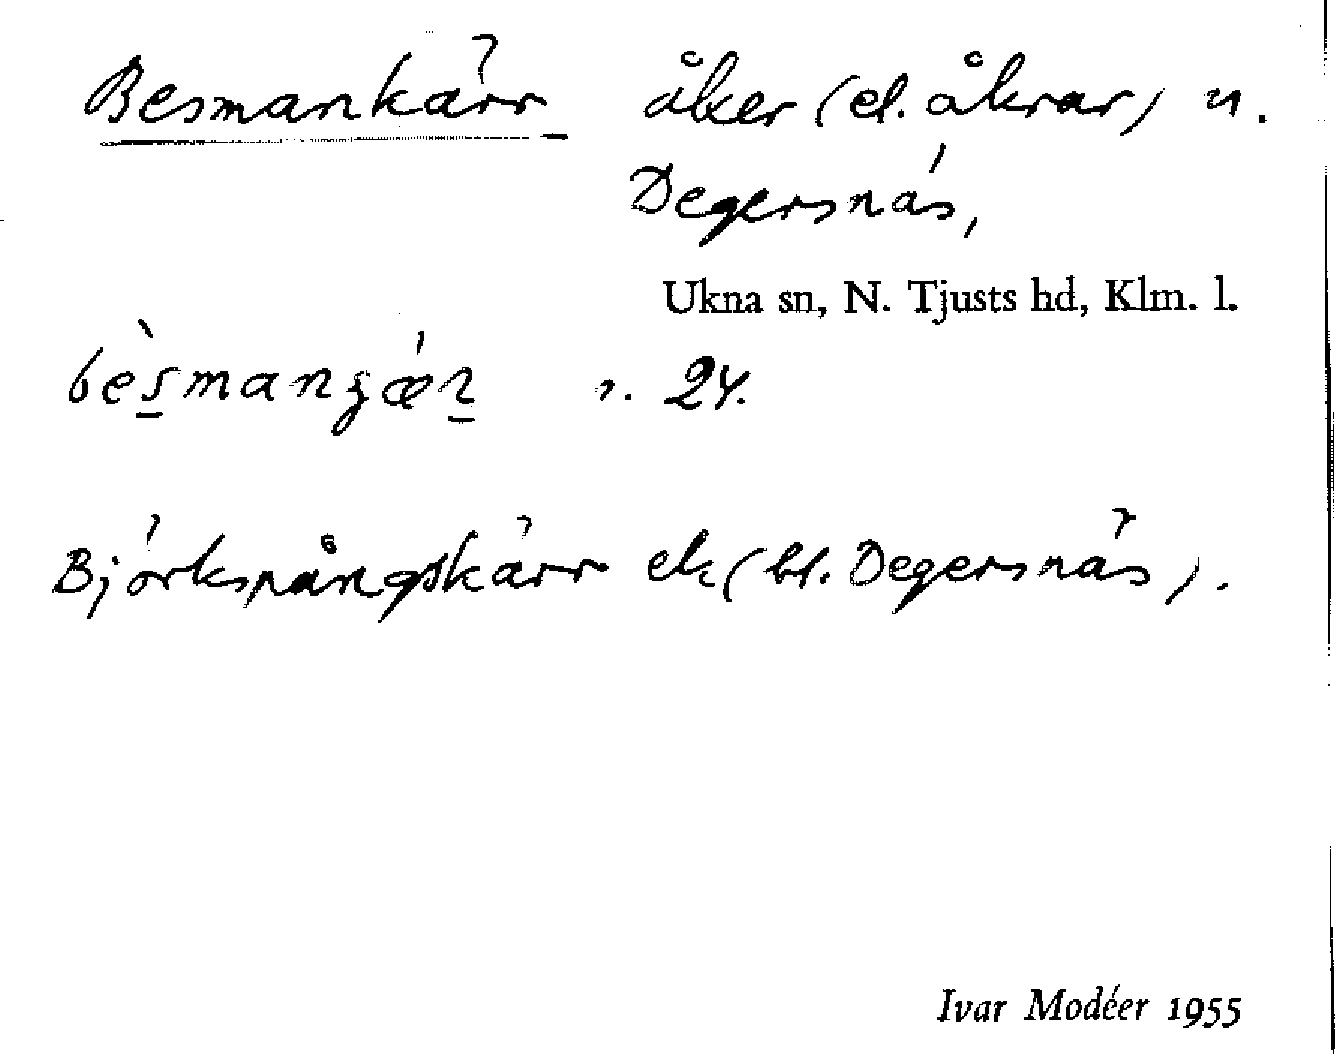 Besmankärr åker (el. åkrar) u.
Degersnäs,
Ukna sn, N. Tjusts hd, Klm. l.
24.
Björkspångskärr ek. (bl. Degersnäs).
Ivar Modéer 1955